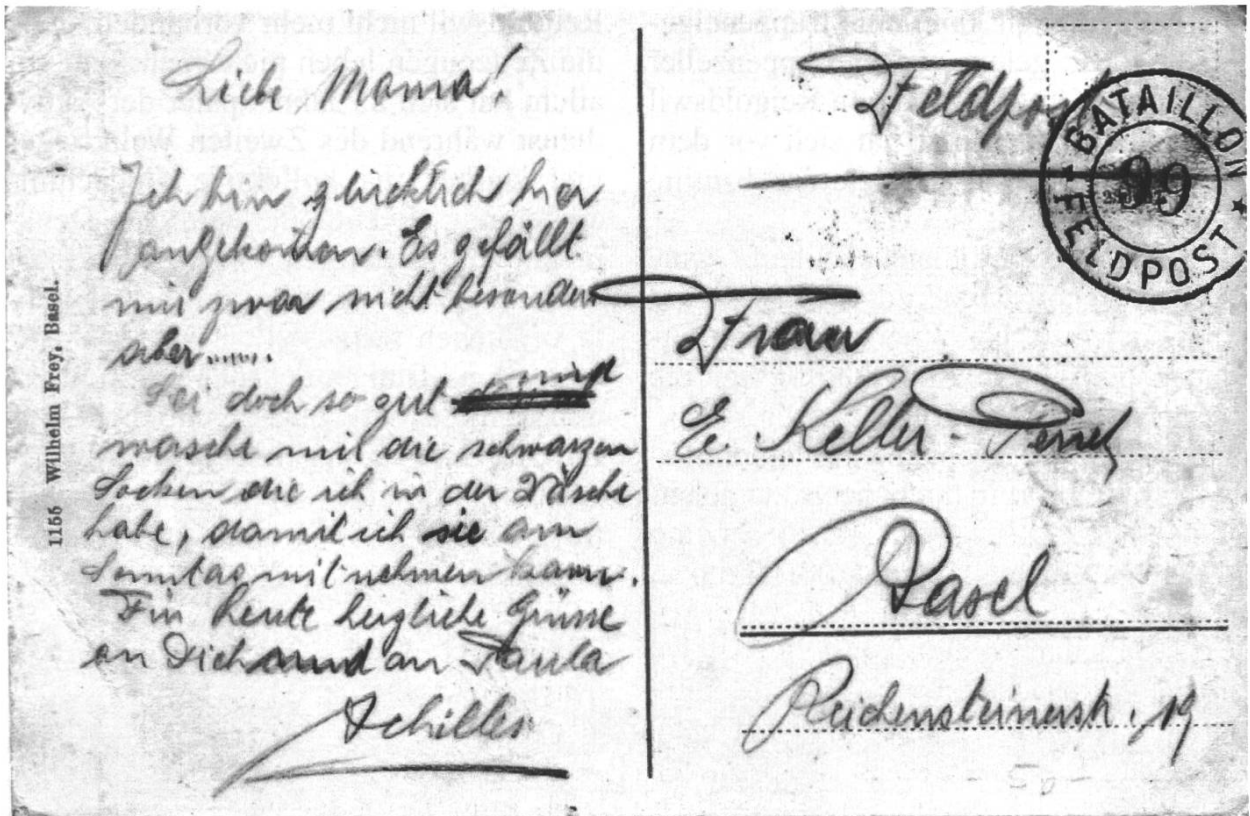 Liebe Mama!
Ich bin glücklich hier
angekommen. Es gefällt
mir zwar nicht besonders
aber......
Sei doch so gut und
wasche mir die schwarzen
Socken die ich in der Wäsche
habe, damit ich sie am
Sonntag mitnehmen kann.
Für heute herzliche Grüsse
an Dich und an Paula
Achilles
1156 Wilhelm Frey, Basel.
Feldpost
BATAILLON
99
FELDPOST
Frau
E. Keller-
Basel
Reichensteinerstr. 19